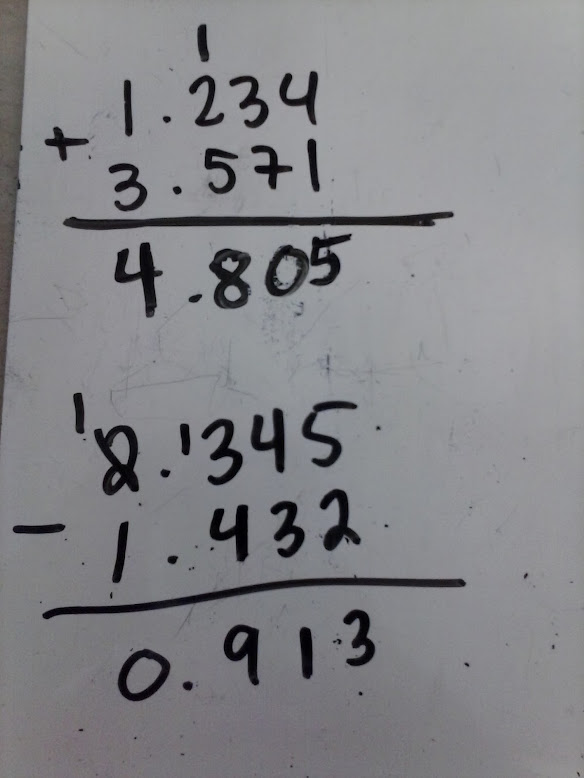 1
1.234
+
3.571
4.805
1
2.1345
- 1.432
0.913